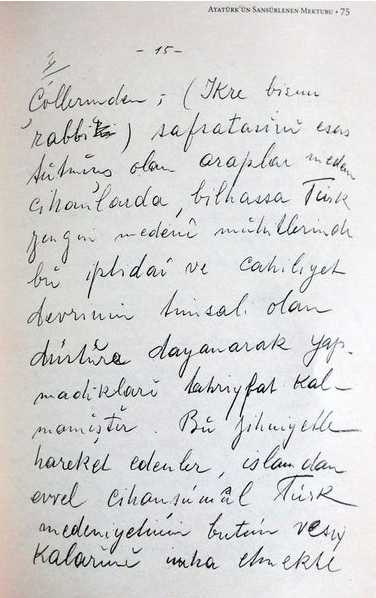 ATATÜRK'ÜN SANSÜRLENEN MEKTUBU • 75
- 15 -
Çöllerinden ; (İkre bismi
rabbi) safsatasını esas
tutmuş olan araplar meden
cihanlarda, bilhassa Türk
zengin medenî muhitlerinde
bu iptidaî ve cahiliyet
devrinin timsali olan
düstûra dayanarak yap-
madıkları tahrifat kal-
mamıştır. Bu zihniyetle
hareket edenler, islamdan
evvel cihanşümûl Türk
medeniyetinin bütün vesi
kalarını imha etmekte